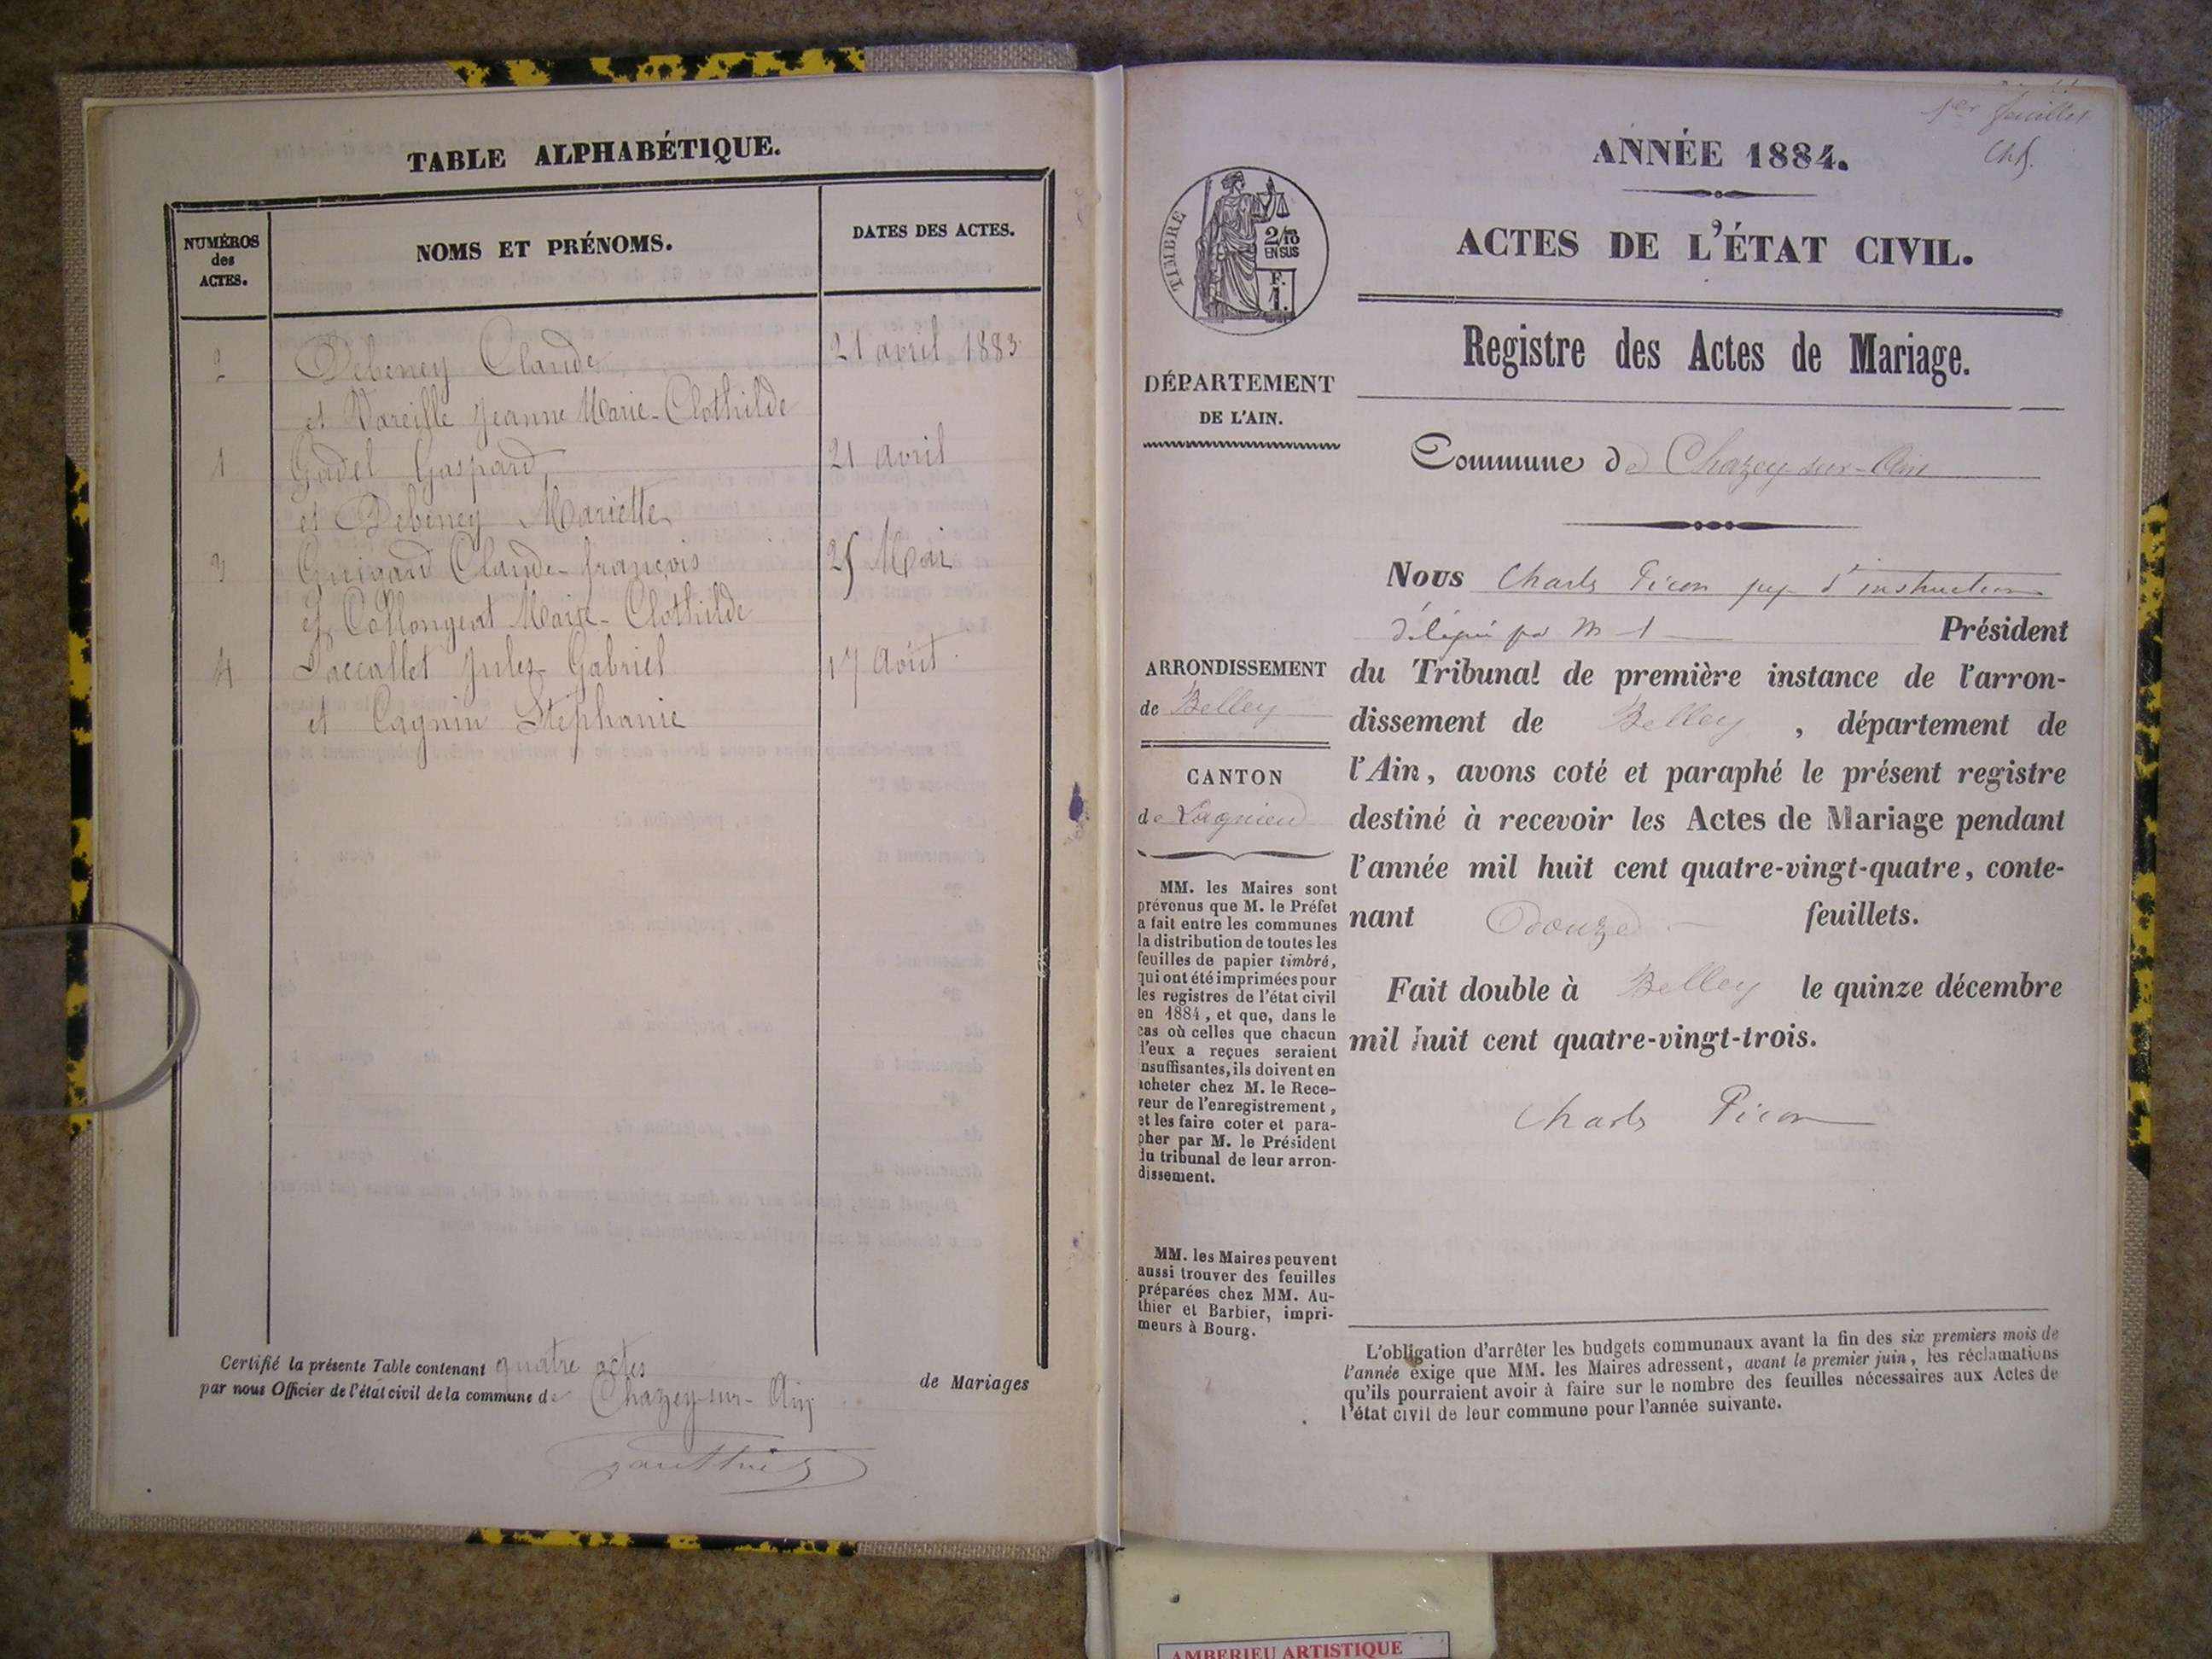 TABLE ALPHABÉTIQUE.
NUMÉROS
des
ACTES.
NOMS ET PRÉNOMS.
DATES DES ACTES.
2 Debeney Claude 21 avril 1883
et Vareille Jeanne Marie-Clothilde
1 Gadel Gaspard 21 avril
et Debeney Mariette
3 Guigard Claude-françois 25 Mai
et Collongeat Marie-Clothilde
4 Jules-Gabriel 17 Août.
et Cagnin Stéphanie
Certifié la présente Table contenant quatre actes
de Mariages
par nous Officier de l'état civil de la commune de Chazey-sur-Ain
1er feuillet
ANNÉE 1884.
TIMBRE
2/10
EN SUS
F.
1.
ACTES DE L'ÉTAT CIVIL.
Registre des Actes de Mariage.
DÉPARTEMENT
DE L'AIN.
Commune de Chazey-sur-Ain
Nous Charles Picon juge d'instruction
délégué par M. l Président
du Tribunal de première instance de l'arron-
dissement de Belley , département de
l'Ain, avons coté et paraphé le présent registre
destiné à recevoir les Actes de Mariage pendant
l'année mil huit cent quatre-vingt-quatre, conte-
nant Douze feuillets.
Fait double à Belley le quinze décembre
mil huit cent quatre-vingt-trois.
Charles Picon
ARRONDISSEMENT
de Belley
CANTON
de Lagnieu
MM. les Maires sont
prévenus que M. le Préfet
a fait entre les communes
la distribution de toutes les
feuilles de papier timbré,
qui ont été imprimées pour
les registres de l'état civil
en 1884, et que, dans le
cas où celles que chacun
d'eux a reçues seraient
insuffisantes, ils doivent en
acheter chez M. le Rece-
veur de l'enregistrement,
et les faire coter et para-
pher par M. le Président
du tribunal de leur arron-
dissement.
MM. les Maires peuvent
aussi trouver des feuilles
préparées chez MM. Au-
thier et Barbier, impri-
meurs à Bourg.
L'obligation d'arrêter les budgets communaux avant la fin des six premiers mois de
l'année exige que MM. les Maires adressent, avant le premier juin, les réclamations
qu'ils pourraient avoir à faire sur le nombre des feuilles nécessaires aux Actes de
l'état civil de leur commune pour l'année suivante.
AMBERIEU ARTISTIQUE